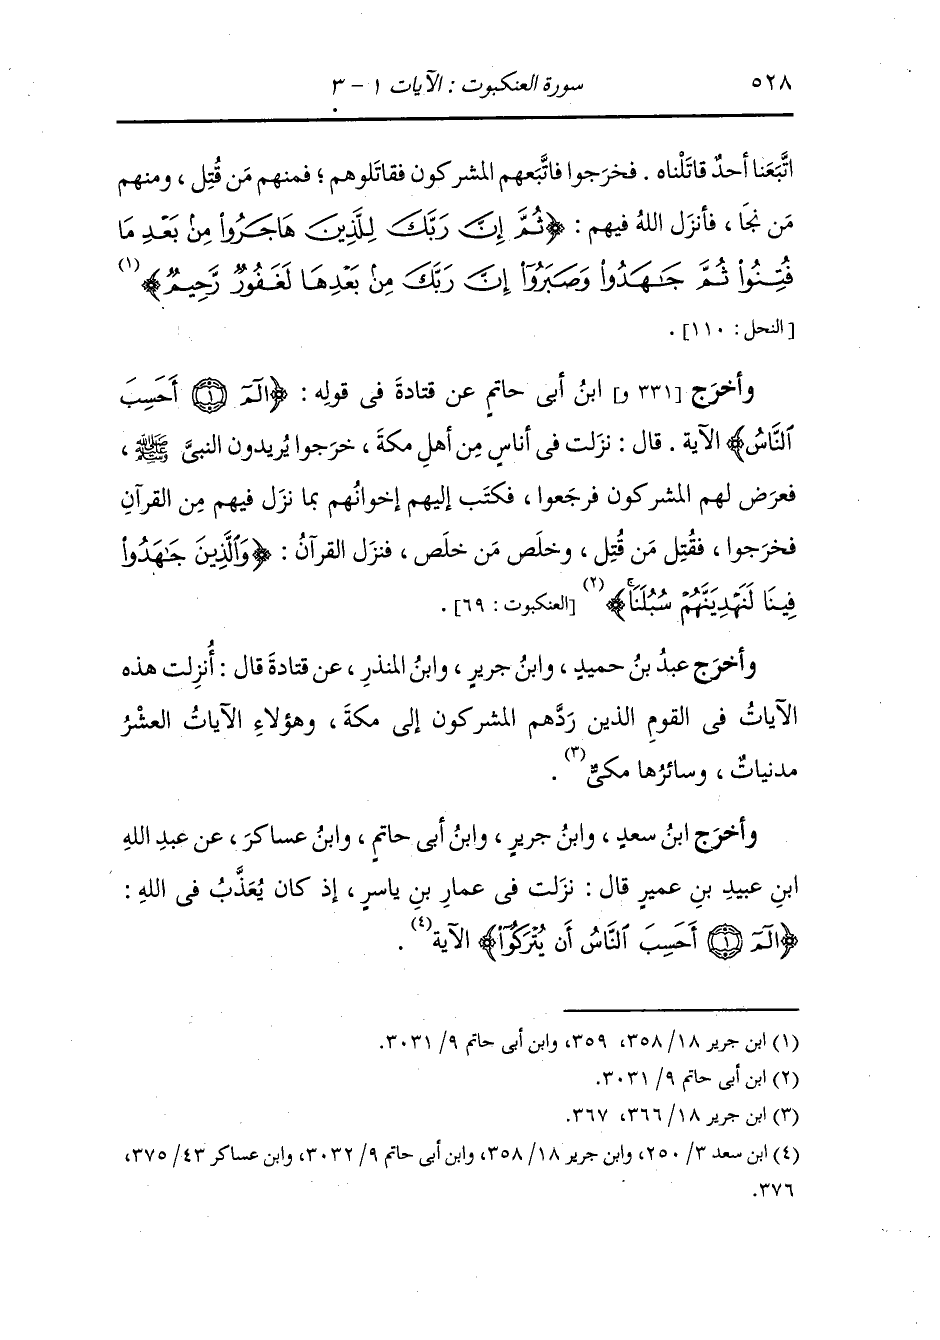 ٥٢٨ سورة العنكبوت : الآيات ١ - ٣
اتَّبَعَنا أحدٌ قاتَلْناه . فخرَجوا فاتَّبعهم المشركون فقاتَلوهم ؛ فمنهم مَن قُتِل ، ومنهم
مَن نجَا ، فأنزَل اللهُ فيهم : ﴿ثُمَّ إِنَّ رَبَّكَ لِلَّذِينَ هَاجَرُوا مِنۢ بَعْدِ مَا
فُتِنُوا ثُمَّ جَٰهَدُوا وَصَبَرُوٓا إِنَّ رَبَّكَ مِنۢ بَعْدِهَا لَغَفُورٌ رَّحِيمٌ﴾ (١)
[النحل : ١١٠] .
وأخرَج [٣٣١ و] ابنُ أبى حاتمٍ عن قتادةَ فى قولِه : ﴿الٓمٓ ١ أَحَسِبَ
ٱلنَّاسُ﴾ الآية . قال : نزَلت فى أناسٍ مِن أهلِ مكةَ ، خرَجوا يُريدون النبىَّ ﷺ ،
فعرَض لهم المشركون فرجَعوا ، فكتَب إليهم إخوانُهم بما نزَل فيهم مِن القرآنِ
فخرَجوا ، فقُتِل مَن قُتِل ، وخلَص مَن خلَص ، فنزَل القرآنُ : ﴿وَٱلَّذِينَ جَٰهَدُوا
فِينَا لَنَهْدِيَنَّهُمْ سُبُلَنَا﴾ (٢) [العنكبوت : ٦٩] .
وأخرَج عبدُ بنُ حميدٍ ، وابنُ جريرٍ ، وابنُ المنذرِ ، عن قتادةَ قال : أُنزِلت هذه
الآياتُ فى القومِ الذين رَدَّهم المشركون إلى مكةَ ، وهؤلاءِ الآياتُ العشْرُ
مدنياتٌ ، وسائرُها مكىٌّ (٣) .
وأخرَج ابنُ سعدٍ ، وابنُ جريرٍ ، وابنُ أبى حاتمٍ ، وابنُ عساكرَ ، عن عبدِ اللهِ
ابنِ عبيدِ بنِ عميرٍ قال : نزَلت فى عمارِ بنِ ياسرٍ ، إذ كان يُعَذَّبُ فى اللهِ :
﴿الٓمٓ ١ أَحَسِبَ ٱلنَّاسُ أَن يُتْرَكُوٓا﴾ الآية (٤) .
(١) ابن جرير ١٨/ ٣٥٨، ٣٥٩، وابن أبى حاتم ٩/ ٣٠٣١.
(٢) ابن أبى حاتم ٩/ ٣٠٣١.
(٣) ابن جرير ١٨/ ٣٦٦، ٣٦٧.
(٤) ابن سعد ٣/ ٢٥٠، وابن جرير ١٨/ ٣٥٨، وابن أبى حاتم ٩/ ٣٠٣٢، وابن عساكر ٤٣/ ٣٧٥،
٣٧٦.